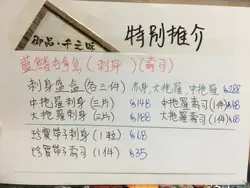 御品·千之味
特別推介
藍鰭吞拿魚(刺身)(壽司)
刺身盛盒(各三件) 赤身,大拖羅,中拖羅 $288
中拖羅刺身(三片) $148 中拖羅壽司(1件) $48
大拖羅刺身(三片) $188 大拖羅壽司(1件) $68
珍寶帶子刺身(1粒) $68
珍寶帶子壽司(1件) $35